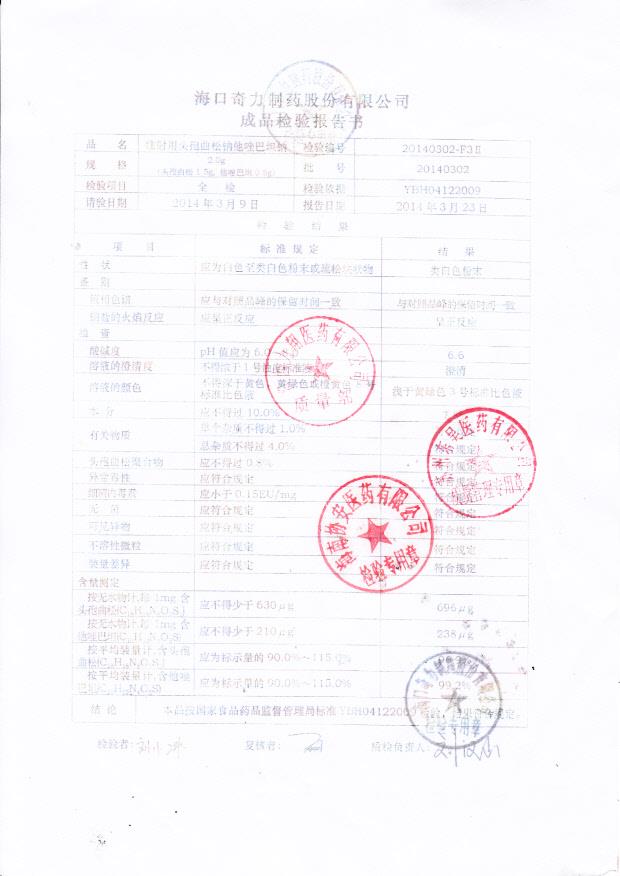 海口奇力制药股份有限公司
成品检验报告书
品 名 注射用头孢曲松钠他唑巴坦钠 检验编号 20140302-F3Ⅱ
规 格 2.0g (头孢曲松1.5g, 他唑巴坦0.5g) 批 号 20140302
检验项目 全 检 检验依据 YBH04122009
请验日期 2014年3月9日 报告日期 2014年3月23日
检 验 结 果
项 目 标准规定 结 果
性 状 应为白色至类白色粉末或疏松块状物 类白色粉末
鉴 别
液相色谱 应与对照品峰的保留时间一致 与对照品峰的保留时间一致
钠盐的火焰反应 应呈正反应 呈正反应
检 查
酸碱度 pH值应为6.0 6.6
溶液的澄清度 不得浓于1号浊度标准液 澄清
溶液的颜色 不得深于黄色、黄绿色或橙黄色 标准比色液 浅于黄绿色3号标准比色液
水 分 应不得过10.0%
有关物质 单个杂质不得过1.0%
总杂质不得过4.0% 符合规定
头孢曲松聚合物 应不得过0.8% 符合规定
异常毒性 应符合规定 符合规定
细菌内毒素 应小于0.15EU/mg 符合规定
无 菌 应符合规定 符合规定
可见异物 应符合规定 符合规定
不溶性微粒 应符合规定 符合规定
装量差异 应符合规定 符合规定
含量测定
按无水物计,每1mg含头孢曲松 应不得少于630μg 696μg
按无水物计,每1mg含他唑巴坦 应不得少于210μg 238μg
按平均装量计,含头孢曲松 应为标示量的90.0%~115.0%
按平均装量计,含他唑巴坦 应为标示量的90.0%~115.0% 99.2%
结 论 本品按国家食品药品监督管理局标准YBH04122009检验,结果符合规定。
检验者: 复核者: 质检负责人:
医药有限公司
质量部
医药有限公司
质量管理专用章
海南协安医药有限公司
检验专用章
海口奇力制药股份有限公司
检验专用章